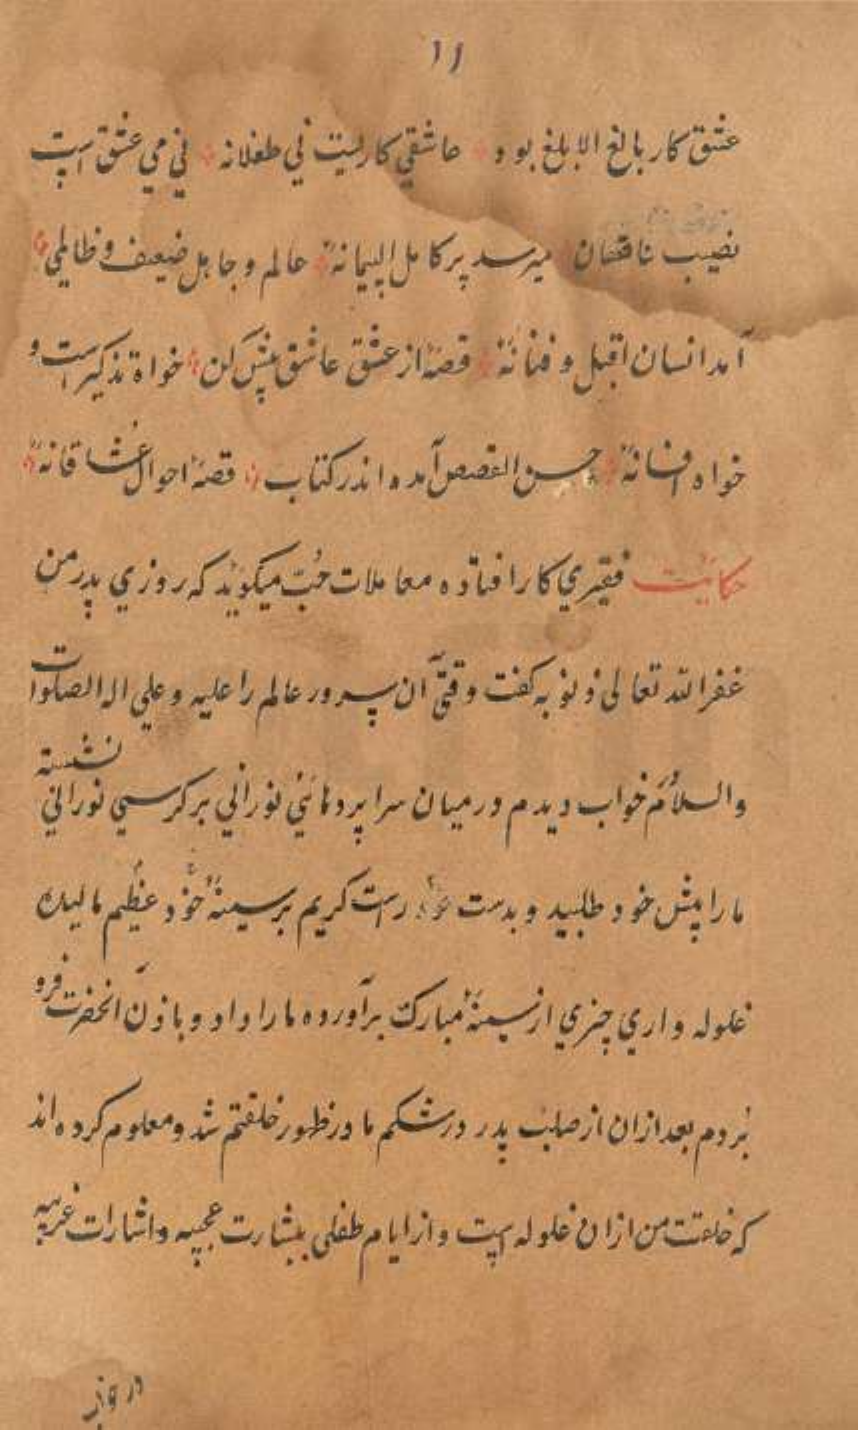 ١١
عشق کار بالغ الابلغ بود * عاشقي کاریست ني طفلانه * ني مي عشق است
نصیب ناقصان * میرسد پر کامل الپیمانهٔ * عالم و جاهل ضعیف و ظالمي *
آمد انسان اقبل و فتانهٔ * قصهٔ از عشق عاشق پیش کن * خواه تذکیر است و
خواه افسانهٔ * احسن القصص آمده اندر کتاب * قصهٔ احوال عُشاقانهٔ *
حکایت فقیري کار افتاده معاملات حُبّ میگوید که روزي پدر من
غفر الله تعالی ذنوبه گفت وقتي آن سرور عالم را علیه و علي اله الصلوات
والسلام خواب دیدم درمیان سراپردهائي نوراني بر کرسي نوراني نشسته
ما را پیش خود طلبید و بدست راست کریم بر سینهٔ خود عظیم مالیده
غلوله واري چیزي از سینهٔ مبارک برآورده ما را داد و باذن آنحضرت فرو
بُردم بعد ازان از صلب پدر در شکم مادر ظهور خلقتم شد و معلوم کرده اند
که خلقت من ازان غلوله است و از ایام طفلی ببشارت عجیبه و اشارات غریبه